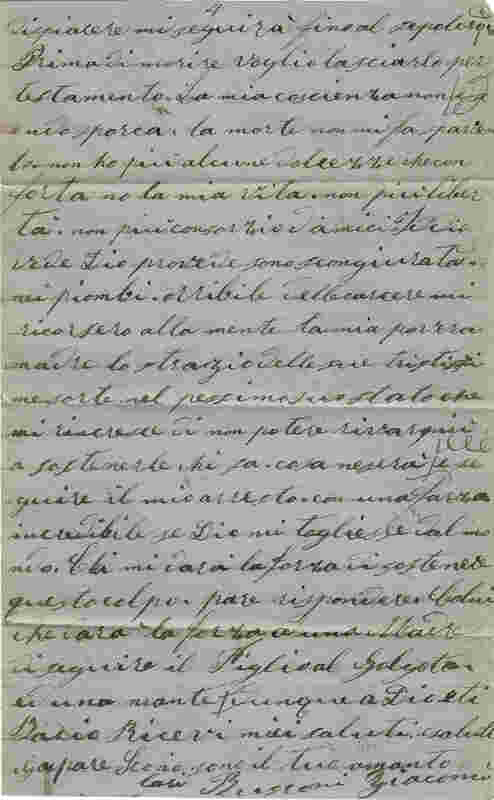 4
dispiacere mi seguirà fino al sepolcro
Prima di morire voglio lasciarlo per
testamento. La mia coscienza non es
endo sporca. la morte non mi fa paura
non ho più alcune dolcezze che con
forta no la mia vita. non più liber
tà. non più consorzio d'amici
vede Dio provede sono scongiurato
nei piombi. orribile delle carcere mi
ricorsero alla mente la mia povera
madre lo strazio delle sue tristissi
me sorte nel pessimo suo stato che
mi rincrese di non potere
a sostenerle chi sa. cosa ne serai se
guire il mio arresto. con una forza
incredibile se Dio mi togliese dal mo
ndo. Chi mi darà la forza di sostenere
questo colpo. pare rispondere Colui
che darà la forza a una Madre
di seguire il Figlio al Golgota
di uno monte dunque a Dio ti
Bacio Ricevi miei saluti. saluti
sono il tuo amanto
Bussoni Giacomo